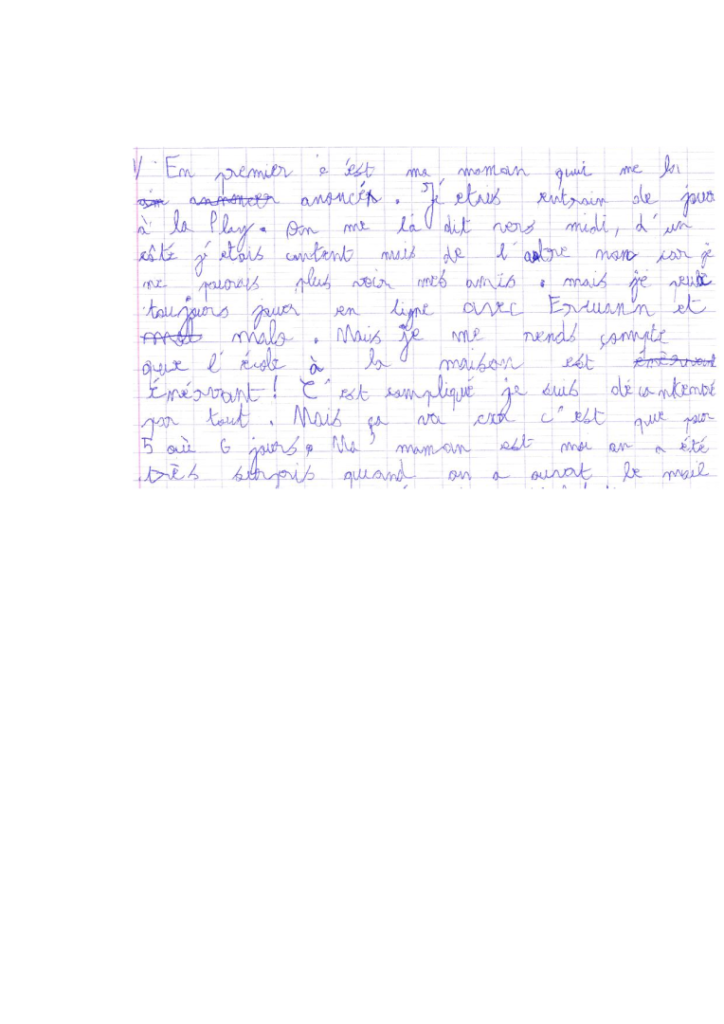 1/ En premier c'est ma maman qui me la
anoncér. J'étais entrain de joua
à la Play. On me la dit vers midi, d'un
côté j'étais content mais de l'autre non car je
ne pourais plus voir mes amis. mais je peux
toujours jouer en ligne avec Erwann et
malo. Mais je me rends compte
que l'école à la maison est
Énérvant! C'est compliqué je suis décontencé
par tout. Mais ça va car c'est que pour
5 où 6 jours. Ma maman est moi on a été
très surpris quand on a ouvert le mail